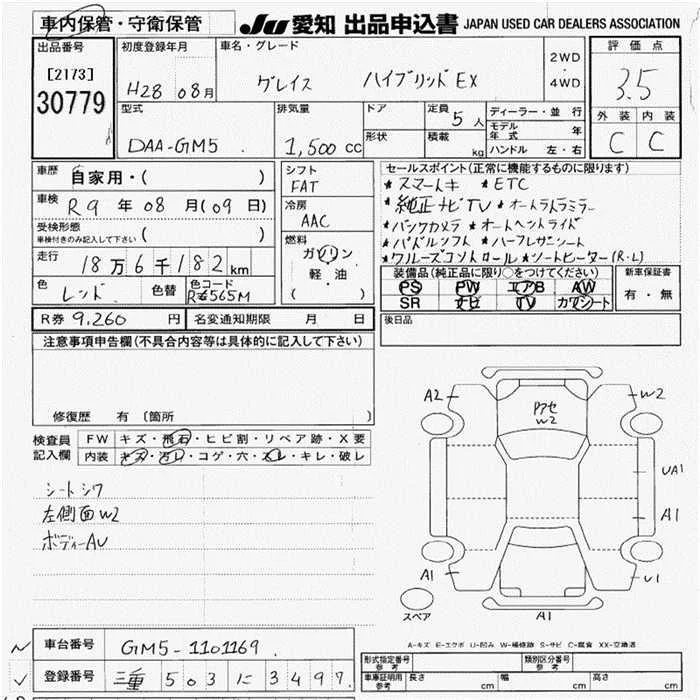 車内保管・守衛保管
JU 愛知 出品申込書 JAPAN USED CAR DEALERS ASSOCIATION
出品番号
[2173]
30779
初度登録年月
H28 08月
車名・グレード
グレイス ハイブリッドEX
2WD
・
4WD
評価点
3.5
外装 内装
C C
型式
DAA-GM5
排気量
1,500 cc
ドア
形状
定員 5人
積載 kg
ディーラー・並行
モデル年式 年
ハンドル 左・右
車歴 自家用・( )
車検 R9年08月(09日)
受検形態
車検付きのみ記入して下さい ( )
走行 18万6千182km
色 レッド 色替 色コード R565M
シフト
FAT
冷房
AAC
燃料
ガソリン
軽・油
( )
セールスポイント(正常に機能するものに限ります)
★スマートキー ★ETC
★純正ナビTV ★オートドアミラー
★バックカメラ ★オートヘッドライト
★パドルシフト ★ハーフレザーシート
★クルーズコントロール ★シートヒーター(R・L)
装備品(純正品に限り○をつけてください)
PS PW エアB AW
SR ナビ TV カワシート
新車保証書
有・無
R券 9,260 円 名変通知期限 月 日
後日品
注意事項申告欄(不具合内容等は具体的に記入して下さい)
修復歴 有 〔箇所 〕
検査員記入欄
FW キズ・飛石・ヒビ割・リペア跡・X要
内装 キズ・汚レ・コゲ・穴・スレ・キレ・破レ
シートシワ
左側面W2
ボディーAU
A2
W2
Pアセ
W2
UA1
A1
A1
U1
スペア
A1
A-キズ E-エクボ U-凹み W-補修跡 S-サビ C-腐食 XX-交換済
車台番号 GM5-1101169
登録番号 三重 503 に 3497
形式指定番号 参考
類別区分番号 参考
車庫証明用 参考 長さ cm 幅 cm 高さ cm